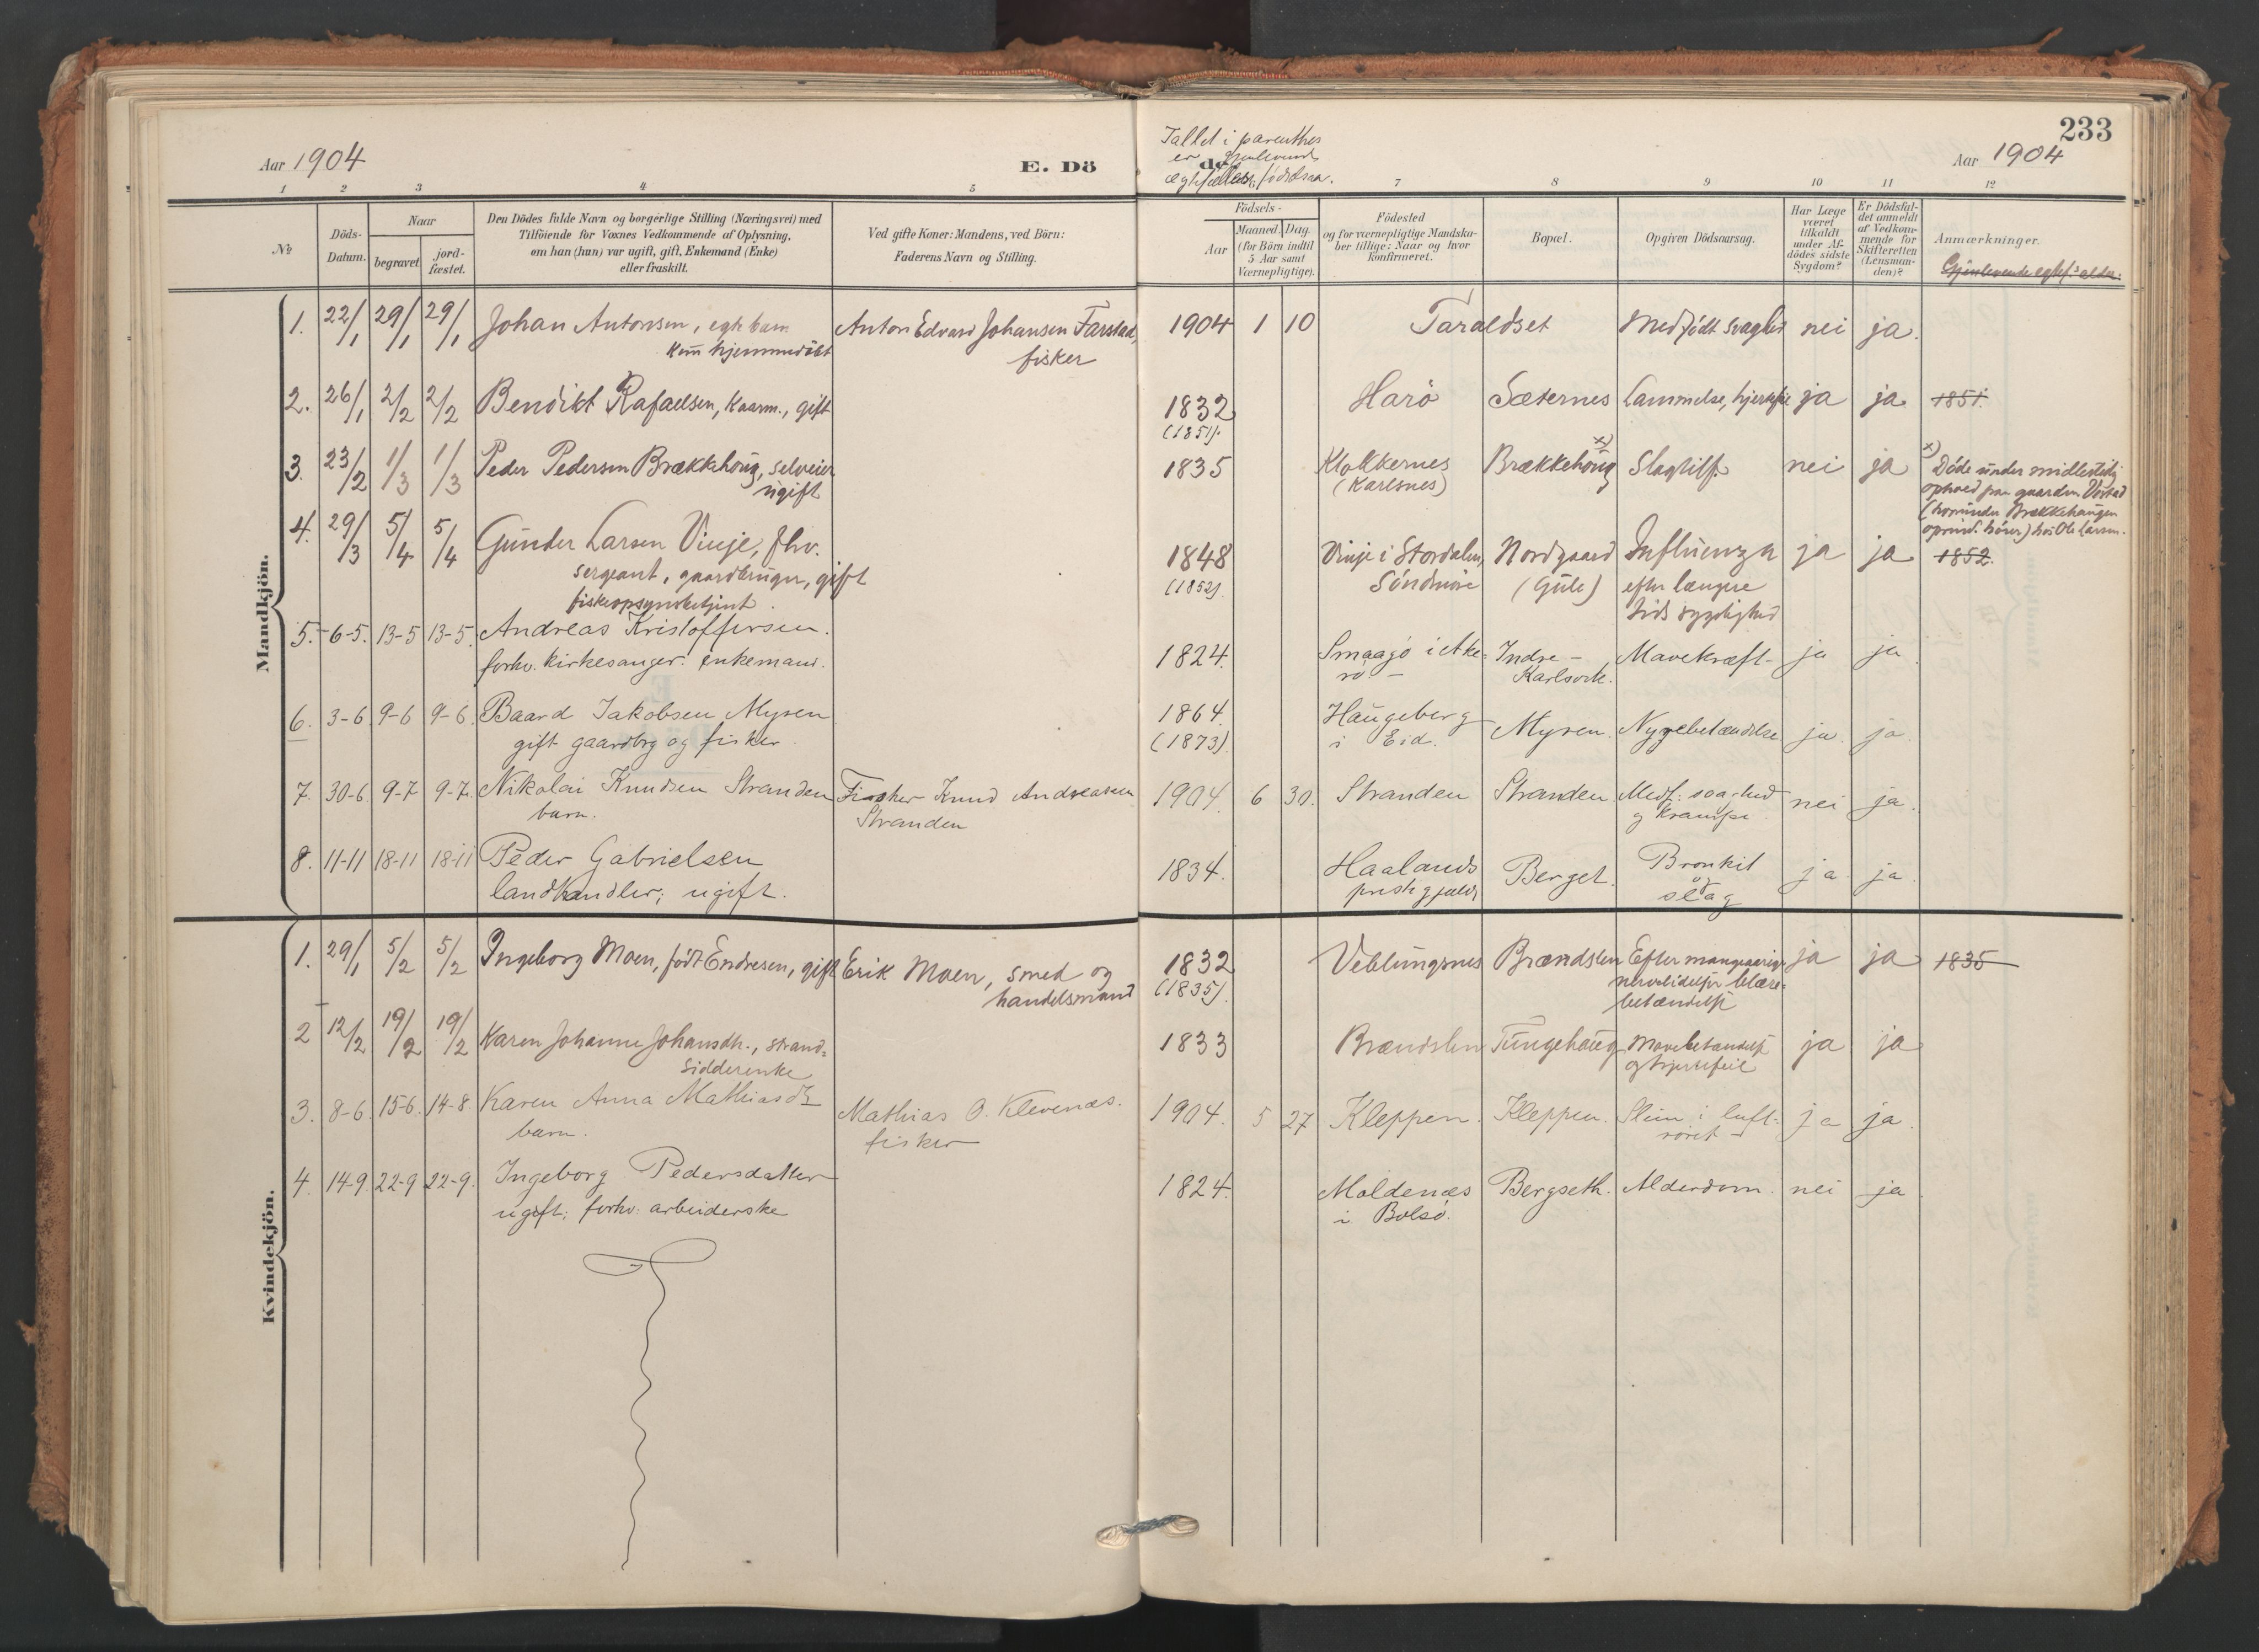 Aar 1904
E. Döde
Tallet i parenthes
er gjenlevende
egtefælles födselsaar.
233
Aar 1904
1 2 3 4 5 7 8 9 10 11 12
№
Döds-
Datum.
Naar
begravet.
jord-
fæstet.
Den Dödes fulde Navn og borgerlige Stilling (Næringsvei) med
Tilföiende for Voxnes Vedkommende af Oplysning,
om han (hun) var ugift, gift, Enkemand (Enke)
eller fraskilt.
Ved gifte Koner: Mandens, ved Börn:
Faderens Navn og Stilling.
Födsels-
Aar
Maaned. Dag.
(for Börn indtil
5 Aar samt
Værnepligtige).
Födested
og for værnepligtige Mandska-
ber tillige: Naar og hvor
konfirmeret.
Bopæl.
Opgiven Dödsaarsag.
Har Læge
været
tilkaldt
under Af-
dödes sidste
Sygdom?
Er Dödsfal-
det anmeldt
af Vedkom-
mende for
Skifteretten
(Lensman-
den)?
Anmærkninger.
Gjenlevende egtef.s alder.
Mandkjön.
1. 22/1 29/1 29/1 Johan Antonsen, egte barn Anton Edvard Johansen Farstad, 1904 1 10 Taraldset Medfödt svaghed nei ja.
kun hjemmedöbt fisker
2. 26/1 2/2 2/2 Bendikt Rafaelsen, kaarm., gift 1832 Harö Sæternes Lammelse, ja ja 1851.
(1851).
3. 23/2 1/3 1/3 Peder Pedersen Brækkehoug, selveier 1835 Klokkernes Brækkehoug x) Slagtilf. nei ja x) Döde under midlertidig
ugift (Karlsnes) ophold paa gaarden Vestad
(hvorunder Brækkehaugen
oprind. hörer) hos Ole Larsen.
4. 29/3 5/4 5/4 Gunder Larsen Vinje, fhv. 1848 Vinje i Stordalen, Nordgaard Influenza ja ja 1852.
sergeant, gaardbruger, gift (1852). Söndmöre (Gule) efter længere
fiskeopsynsbetjent. tids sygelighed
5. 6-5. 13-5 13-5. Andreas Kristoffersen. 1824. Smaagö i Ake- Indre- Mavekræft- ja ja
forhv. kirkesanger. enkemand. rö. Karlsvik.
6. 3-6 9-6 9-6. Baard Jakobsen Myren 1864. Haugeberg Myren. Nyrebetændelse ja. ja.
gift gaardbrg og fisker. (1873). i Eid.
7. 30-6 9-7 9-7. Nikolai Knudsen Stranden Fisker Knud Andreasen 1904. 6 30. Stranden Stranden. Medf: svaghed nei ja.
barn. Stranden og krampe.
8. 11-11 18-11 18-11 Peder Gabrielsen 1834. Haalands Berget. Bronkit ja ja.
landhandler; ugift. prestegjæld og
slag
Kvindekjön.
1. 29/1 5/2 5/2 Ingeborg Moen, född Endresen, gift Erik Moen, smed og 1832 Veblungsnes Brændslen Efter mangeaarige ja ja 1835
handelsmand (1835). nervelidelser blære-
betændelse
2 12/2 19/2 19/2 Karen Johanne Johansdtr., strand- 1833 Brændslen Tungehaug Mavebetændelse ja ja
sidderenke og hjertefeil
3. 8-6. 15-6. 14-8. Karen Anna Mathiasdtr Mathias O. Klevenæs. 1904. 5 27 Kleppen. Kleppen. Slim i luft- ja ja.
barn. fisker röret
4. 14-9. 22-9 22-9. Ingeborg Pedersdatter 1824. Moldenæs Bergseth. Alderdom. nei ja
ugift; forhv: arbeiderske i Bolsö.